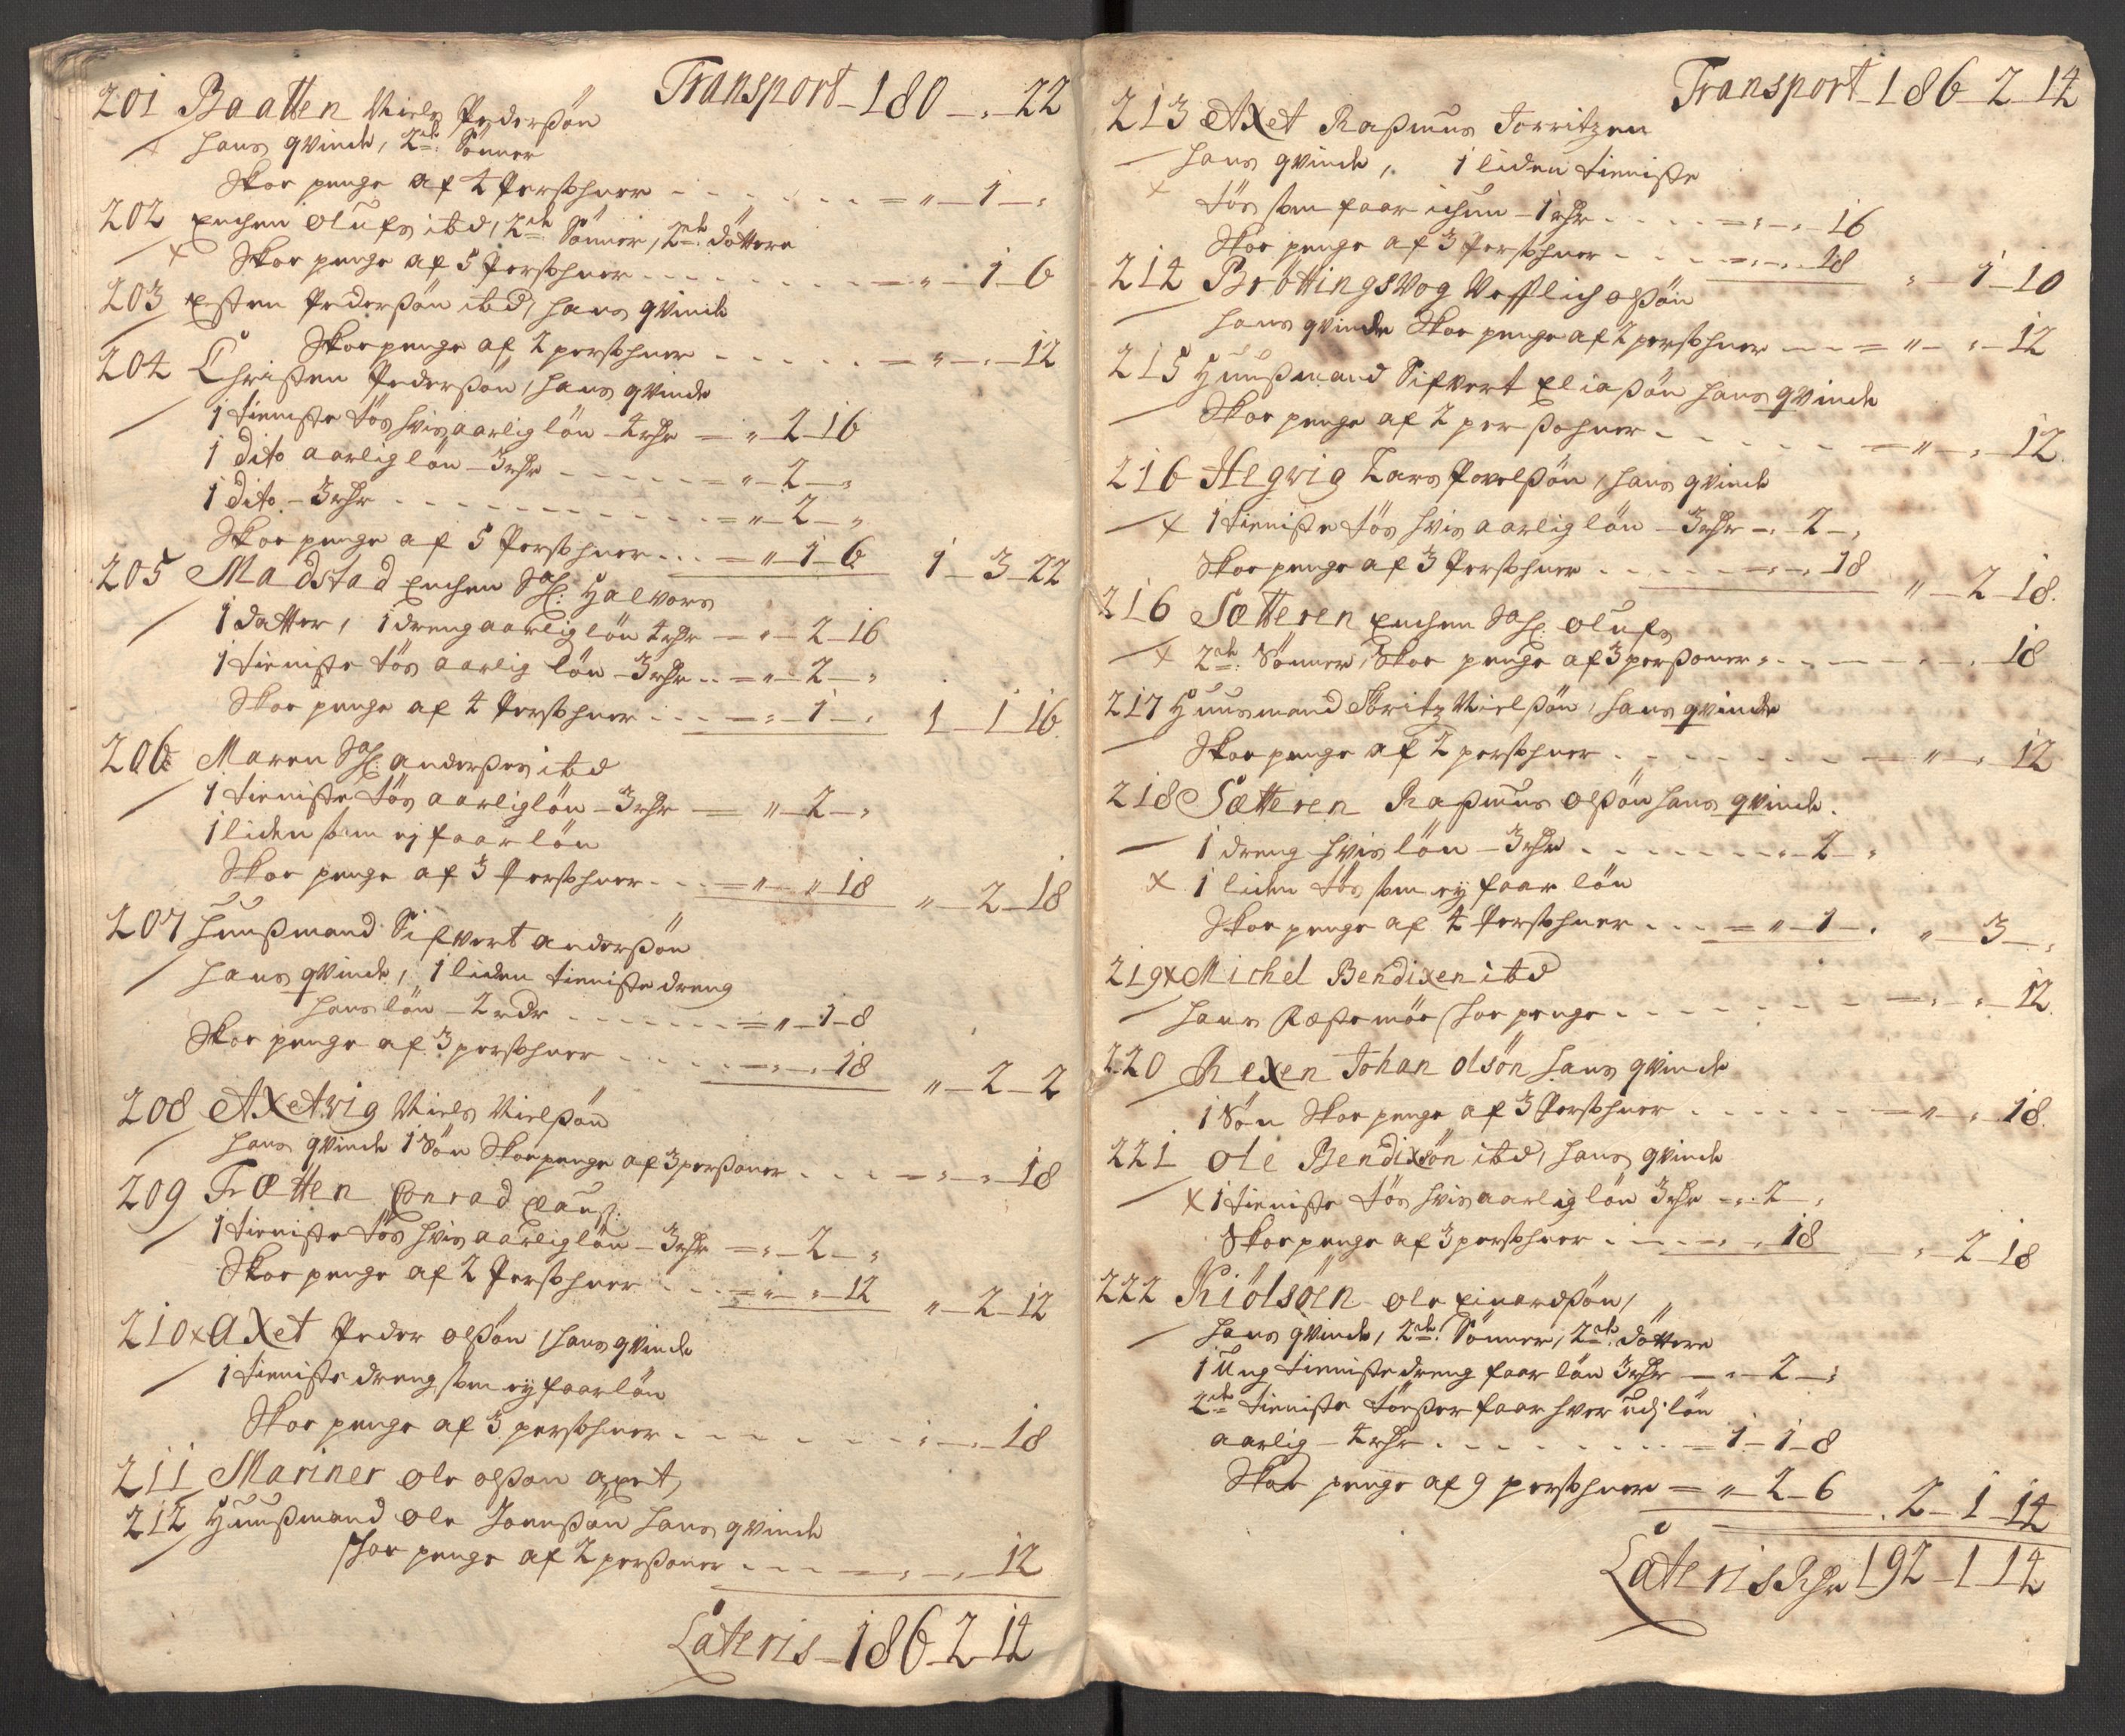 Transport - 180 - " - 22
201 Baatten Niels Pederßön
hans qvinde, 2de Sönner
Skoe penge af 4 Persohner - - - - = " - 1 - "
202 Enchen Olufs ibd, 2de Sönner, 2de döttere
Skoe penge af 5 Persohner - - - - = " - 1 - 6
203 Esten Pederßön ibd, hans qvinde
Skoepenge af 2 persohner - - - - = " - " - 12
204 Christen Pederßön, hans qvinde
1 tieniste tös hvis aarlig lön - 4 rdr = " 2 - 16
1 dito aarlig lön - 3 rdr - - - - = " - 2 - "
1 dito - 3 rdr - - - - = " - 2 - "
Skoe penge af 5 Persohner - - - = " - 1 - 6 1 - 3 - 22
205 Madstad Enchen Sal: Halvors
1 datter, 1 dreng aarlig lön 4 rdr - " - 2 - 16
1 tieniste tös aarlig lön - 3 rdr - - = " - 2 - "
Skoe penge af 4 Persohner - - - = " - 1 - " 1 - 1 - 16
206 Maren Sal: Anderßes ibd
1 tieniste tös aarlig lön - 3 rdr = " - 2 - "
1 liden som ej faar lön
Skoe penge af 3 Persohner - - = " - " 18 " - 2 - 18
207 Huußmand Sifvert Anderßön
hans qvinde, 1 liden tieniste dreng
hans lön - 2 rdr - - - - = " - 1 - 8
Skoe penge af 3 persohner - - - - = " - " 18 " - 2 - 2
208 Axetvig Niels Nielßön
hans qvinde 1 Sön Skoepenge af 3 persßoner - - - = " - " 18
209 Trætten Conrad Clauß:
1 tieniste tös hvis aarlig lön - 3 rdr = " - 2 - "
Skoe penge af 2 Persohner - - - = " - " 12 " - 2 - 12
210 x Axet Peder Olßön, hans qvinde
1 tieniste dreng som ey faar lön
Skoe penge af 3 persohner - - - - " - " 18
211 Mariner Ole Olßön Axet,
212 Huußmand Ole Joenßön hans qvinde
Skoe penge af 2 persßoner - - - - = " - " 12
Lateris - 186 - 2 - 14
Transport - 186 - 2 - 14
213 Axet Raßmus Jorritzen
hans qvinde, 1 liden tieniste
tös som faar ichun - 1 rdr - - - = " - " 16
Skoe penge af 3 Persohner - - - = " - " 18 " - 1 - 10
214 Bröttingsvog Vefflich Olßön
hans qvinde Skoe penge af 2 persohner - - = " - " - 12
215 Huußmand Sifvert Eliaßön hans qvinde
Skoe penge af 2 perßohner - - - - = " - " 12
216 Hegvig Lars Povelßön, hans qvinde
x 1 tieniste tös hvis aarlig lön - 3 rdr - " 2 - "
Skoe penge af 3 Persohner - - - - = " - " 18 " - 2 - 18
216 Sætteren Enchen Sal: Olufs
x 2de Sönner, Skoe penge af 3 perßoner - - - " - " 18
217 Huusmand Nielßön, hans qvinde
Skoe penge af 2 persohner - - - - = " - " 12
218 Sætteren Raßmus Olßön hans qvinde
1 dreng hvis lön - 3 rdr - - - - " - 2 - "
x 1 liden tös som ey faar lön
Skoe penge af 4 Persohner - - - = " - 1 - " " - 3 - "
219 x Michel Bendixen ibd
hans Skoe penge - - - - = " - " 12
220 Rexen Johan Olsön hans qvinde
1 Sön Skoe penge af 3 Persohner - - - - = " - " 18
221 Ole Bendixsön ibd, hans qvinde
x 1 tieniste tös hvis aarlig lön 3 rdr - " 2 - "
Skoe penge af 3 persohner - - - - " 18 " - 2 - 18
222 Kiölsöen Ole Einardßön,
hans qvinde, 2de Sönner, 2de döttere
1 Ung tieniste dreng faar lön 3 rdr - " - 2 - "
2de tieniste töeßer faar hver udj lön
aarlig - 4 rdr - - - - = 1 - 1 - 8
Skoe penge af 9 persohner = " - 2 - 6 2 - 1 - 14
Lateris Rdr 192 - 1 - 14